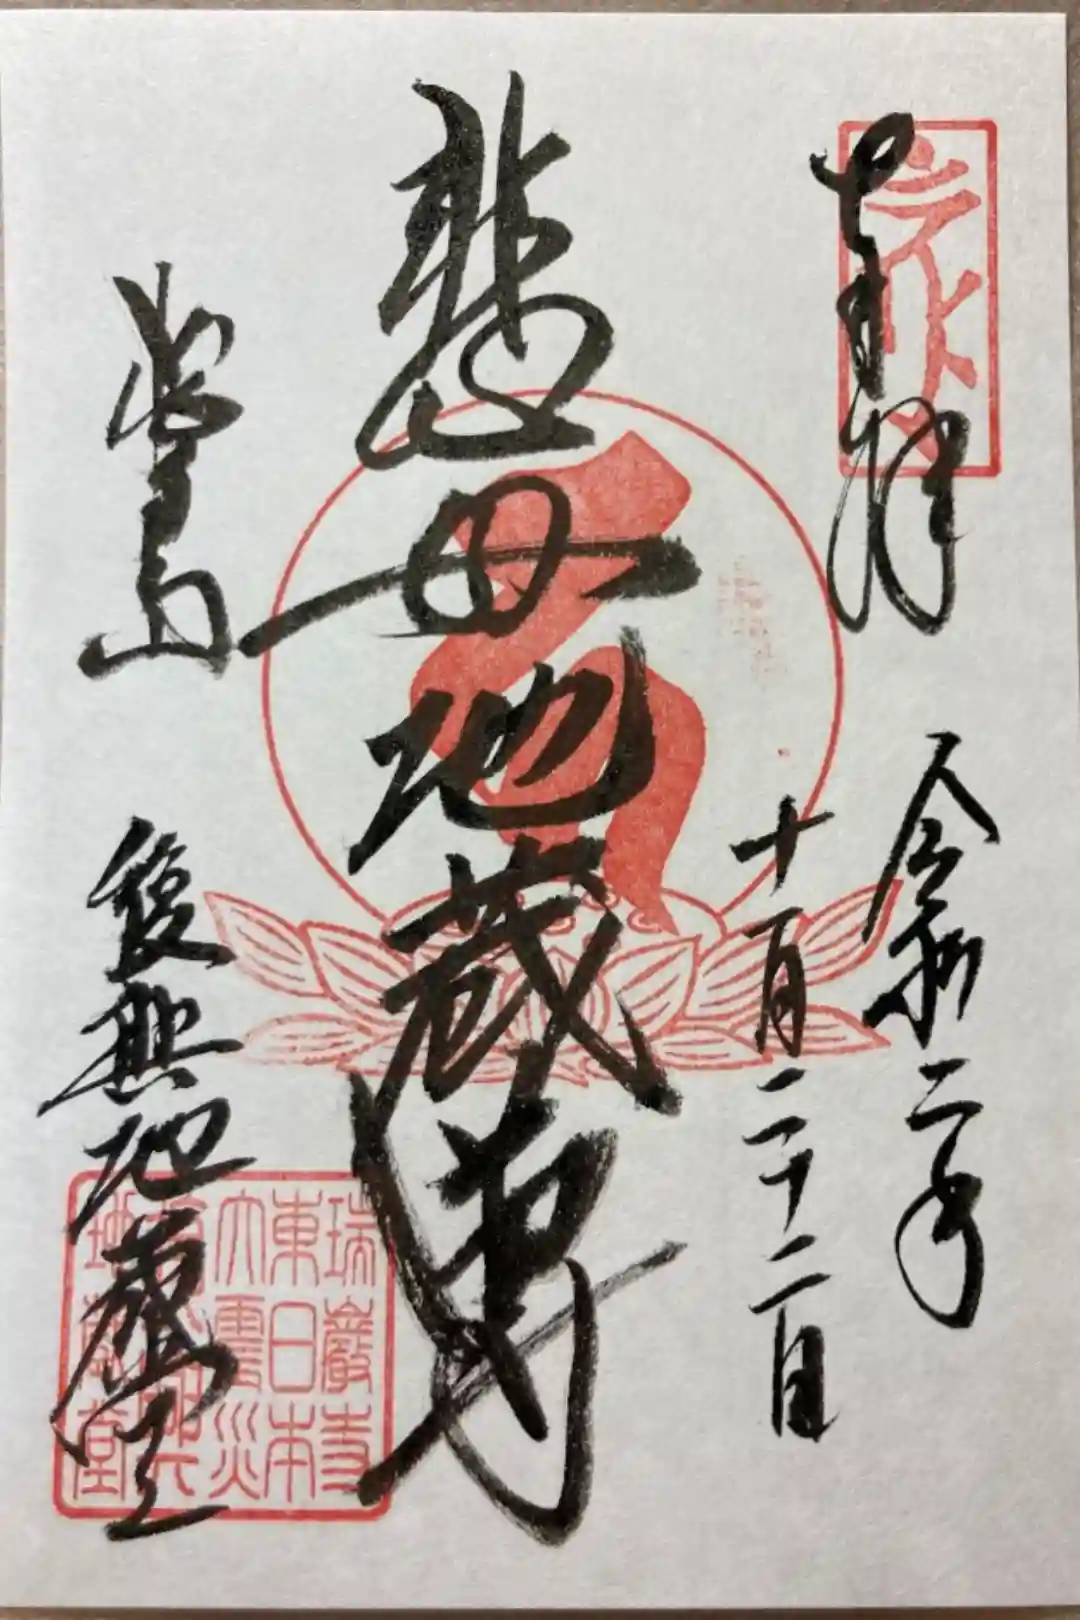 奉拝
令和二年
十月二十二日
悲母地蔵尊
松島
地蔵堂
瑞巖寺
東日本
大震災
地蔵堂